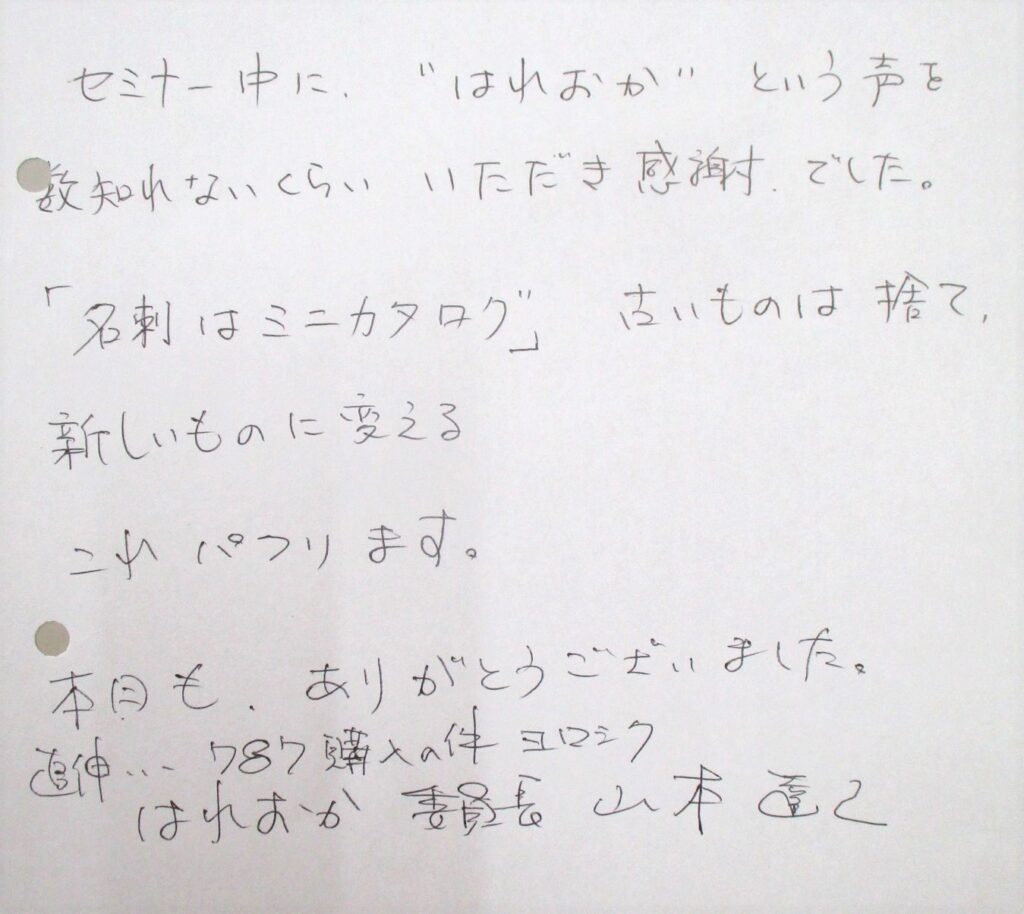 セミナー中に、“はれおか”という声を
数知れないくらい いただき感謝、でした。
「名刺はミニカタログ」 古いものは捨て、
新しいものに変える
これ パフリます。
本日も、ありがとうございました。
追伸… 787購入の件 ヨロシク
はれおか 委員長 山本